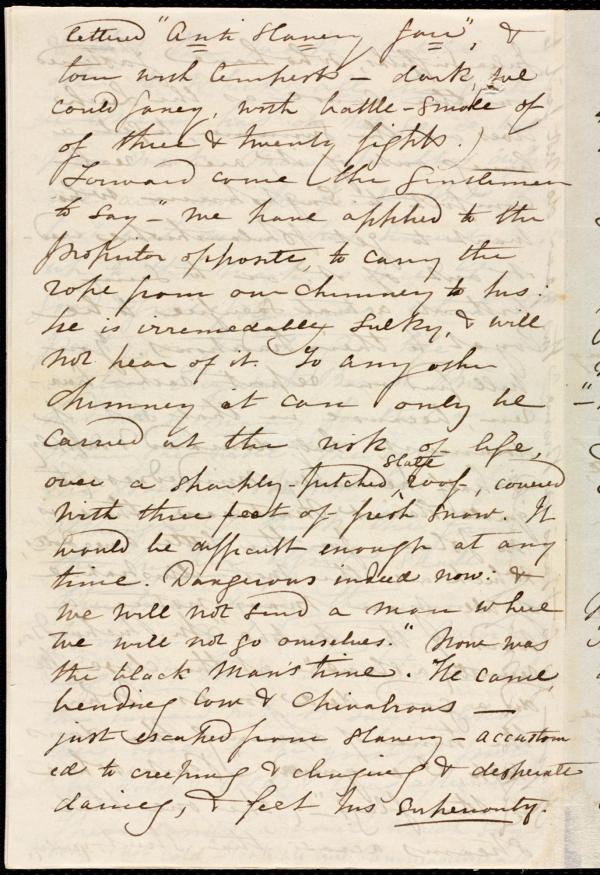 lettered "Anti Slavery Fair", &
torn with tempests - dark, we
could fancy, with battle-smoke of
of three & twenty fights.)
Forward come the Gentlemen
to say - "we have applied to the
proprietor opposite, to carry the
rope from our chimney to his:
he is irremediably sulky, & will
not hear of it. To any other
chimney it can only be
carried at the risk of life,
over a sharply-pitched slate roof, covered
with three feet of fresh snow. It
would be difficult enough at any
time. Dangerous indeed now: &
we will not send a man where
we will not go ourselves." Now was
the black man's time. He came
bending low & chivalrous —
just escaped from slavery - accustom
ed to creeping & clinging & desperate
daring, & felt his superiority.